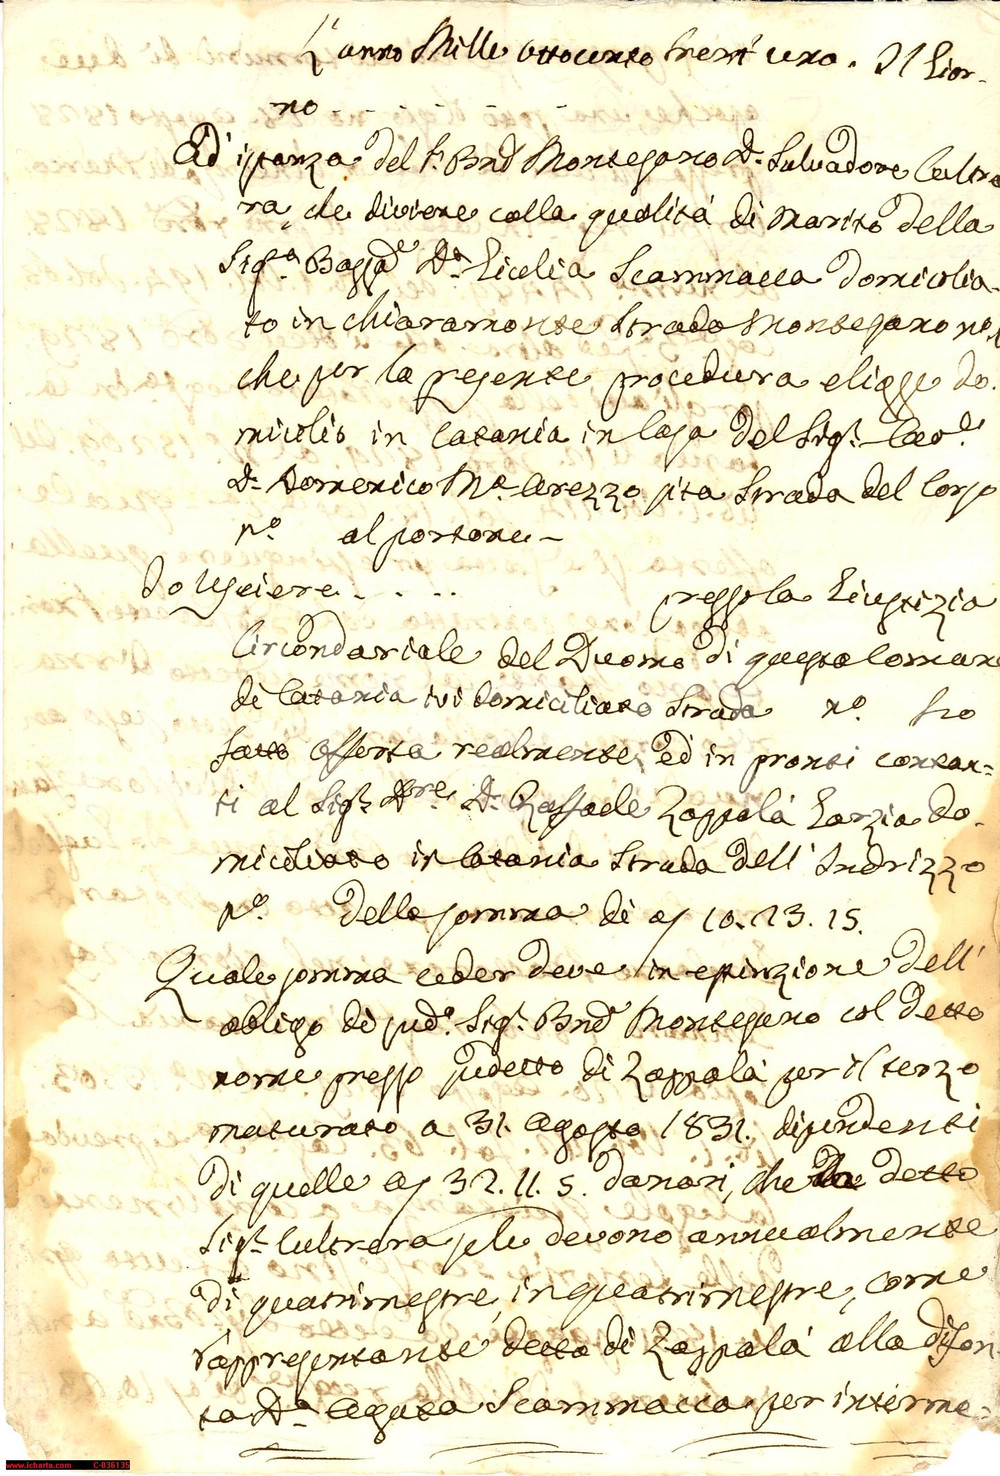 L'anno Mille ottocento trent'uno. Il Gior-
no - - - - -
Ad istanza del Sr. Bne. Montesano Dn. Salvadore Cultre
ra, che diviene colla qualità di Marito della
Sig.a Bar.a Da. Giulia Scammacca domicilia-
to in Chiaramonte Strada Montesano no.
che per la presente procedura eligge do-
micilio in Catania in Casa del Sigr. Cav.
Dn. Domenico Ma. Arezzo sita Strada del Corso
no. al portone -
Io Usciere - . . . presso la Giustizia
Circondariale del Duomo di questa Comune
di Catania ivi domiciliato Strada no. ho
fatto offerta realmente, ed in pronti contan-
ti al Sigr. Dre. Dn. Raffaele Zappalà Garzia do-
miciliato in Catania Strada dell'Indrizzo
no. della somma di 10.23.15.
Quale somma ceder deve in estinzione dell'
obligo di sudo. Sigr. Bne. Montesano col detto
nome presso sudetto di Zappalà per il terzo
maturato a 31. Agosto 1831. dipendenti
di quelle 32.11.5. danari, che detto
Sigr. Cultrera se le devono annualmente
di quatrimestre, in quatrimestre, come
rappresentante detto di Zappalà alla defon-
ta Da. Agata Scammacca per interme-
www.icharta.com C-836135